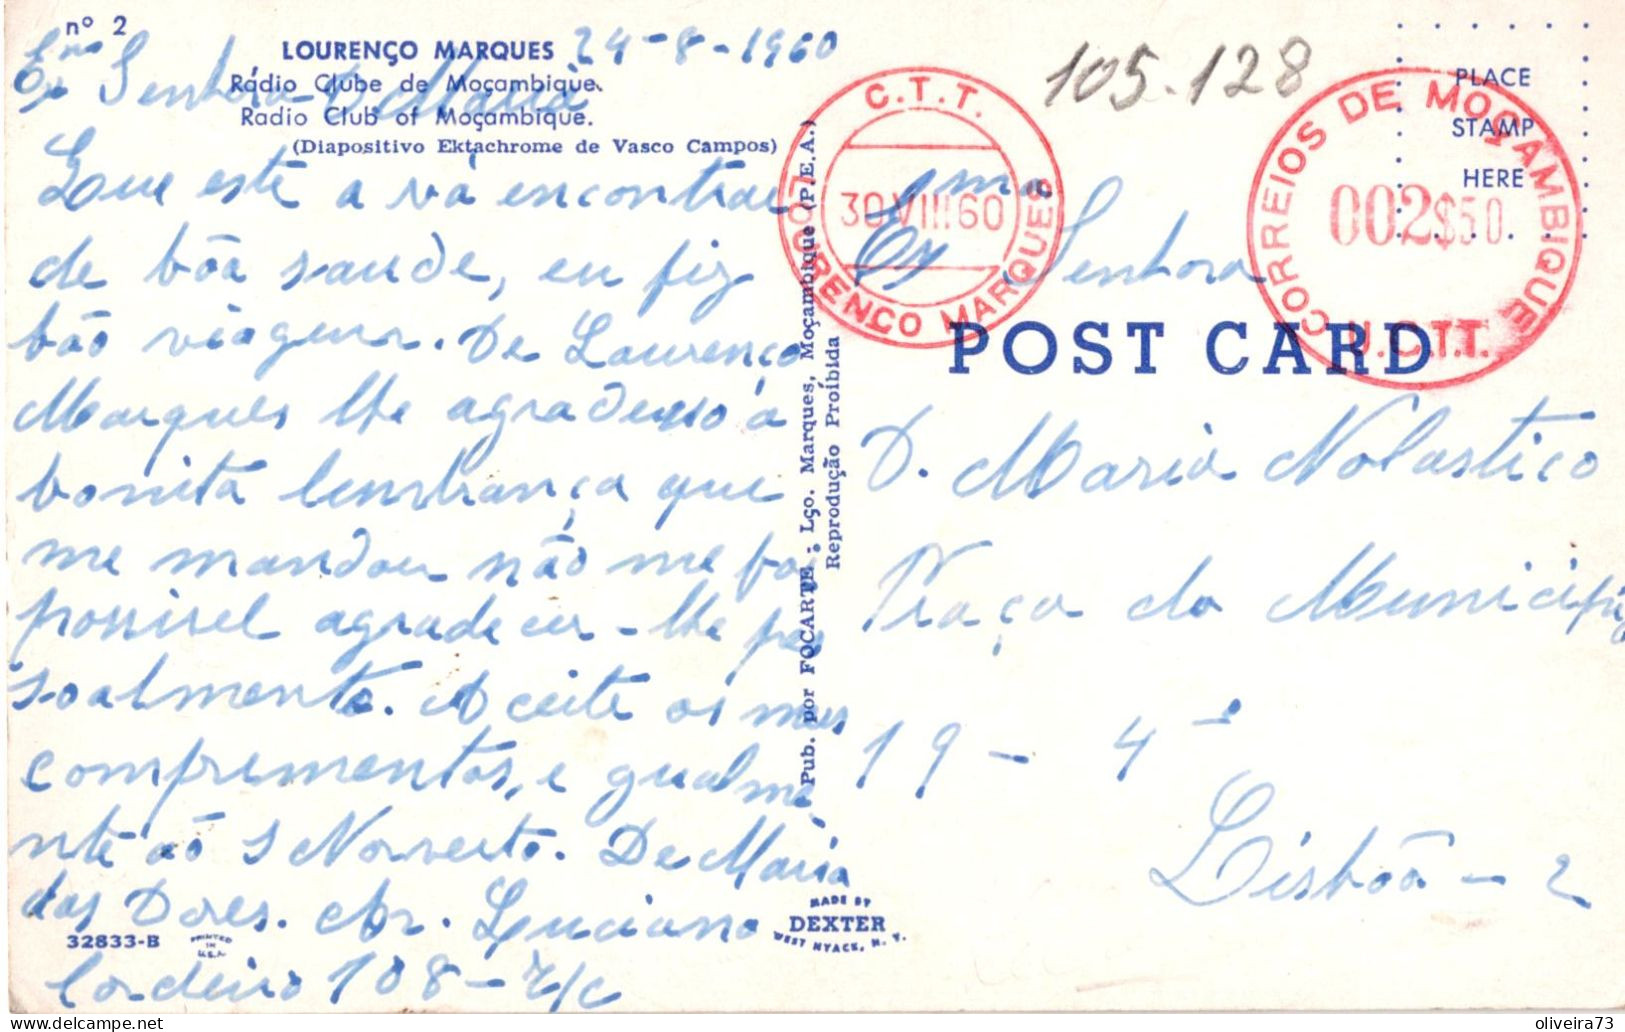 nº 2
LOURENÇO MARQUES
24-8-1960
Rádio Clube de Moçambique.
Radio Club of Moçambique.
(Diapositivo Ektachrome de Vasco Campos)
Exma Senhora D Maria
Que esté a vá encontrar
de bôa saude, eu fiz
bôa viágem. De Lourenço
Marques lhe agradeço á
bonita lembrança que
me mandou não me foi
possivel agradecer-lhe pes
soalmente. Aceite os meus
comprimentos, e gualme
nte aó S Norverto. De Maria
das Dores. Av. Luciano
Cordeiro 108-r/c
32833-B
PRINTED IN U.S.A.
MADE BY
DEXTER
WEST NYACK, N. Y.
Pub. por FOCARTE - Lço. Marques, Moçambique (P.E.A.)
Reprodução Proíbida
105.128
C.T.T.
30 VIII 60
LOURENÇO MARQUES
CORREIOS DE MOÇAMBIQUE
002$50
U.C.T.T.
PLACE
STAMP
HERE
POST CARD
Exma Senhora
D. Maria Nolastico
Praça do Municipio
19 - 4º
Lisbôa - 2
oliveira73